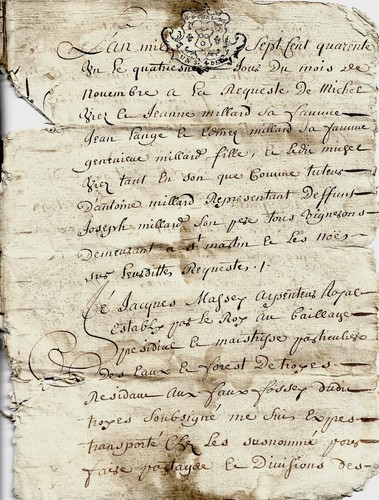 L'an mil Sept Cent quarente
Un le quatriesme Jour du mois de
Novembre a La Requeste de Michel
Viez et Jeanne millard sa famme
Jean Lange et millard sa famme
genevieve millard fille, et Ledit michel
Viez tant En son que Comme tuteur
D'antoine millard Representant Deffunt
Joseph millard Son pere tous Vignerons
Demeurant a St martin et Les Noës
sur Leursdittes Requestes.
Je Jacques Massey Arpenteur Royal
Estably par Le Roy Au Bailliage
presidial et maistrise particuliere
Des Eaux et forest De troyes
Residant Aux faux fossez dudit
troyes Soubsigné me Suis Expres
transporté Chez Les susnommé pour
faire partage et Divisions des